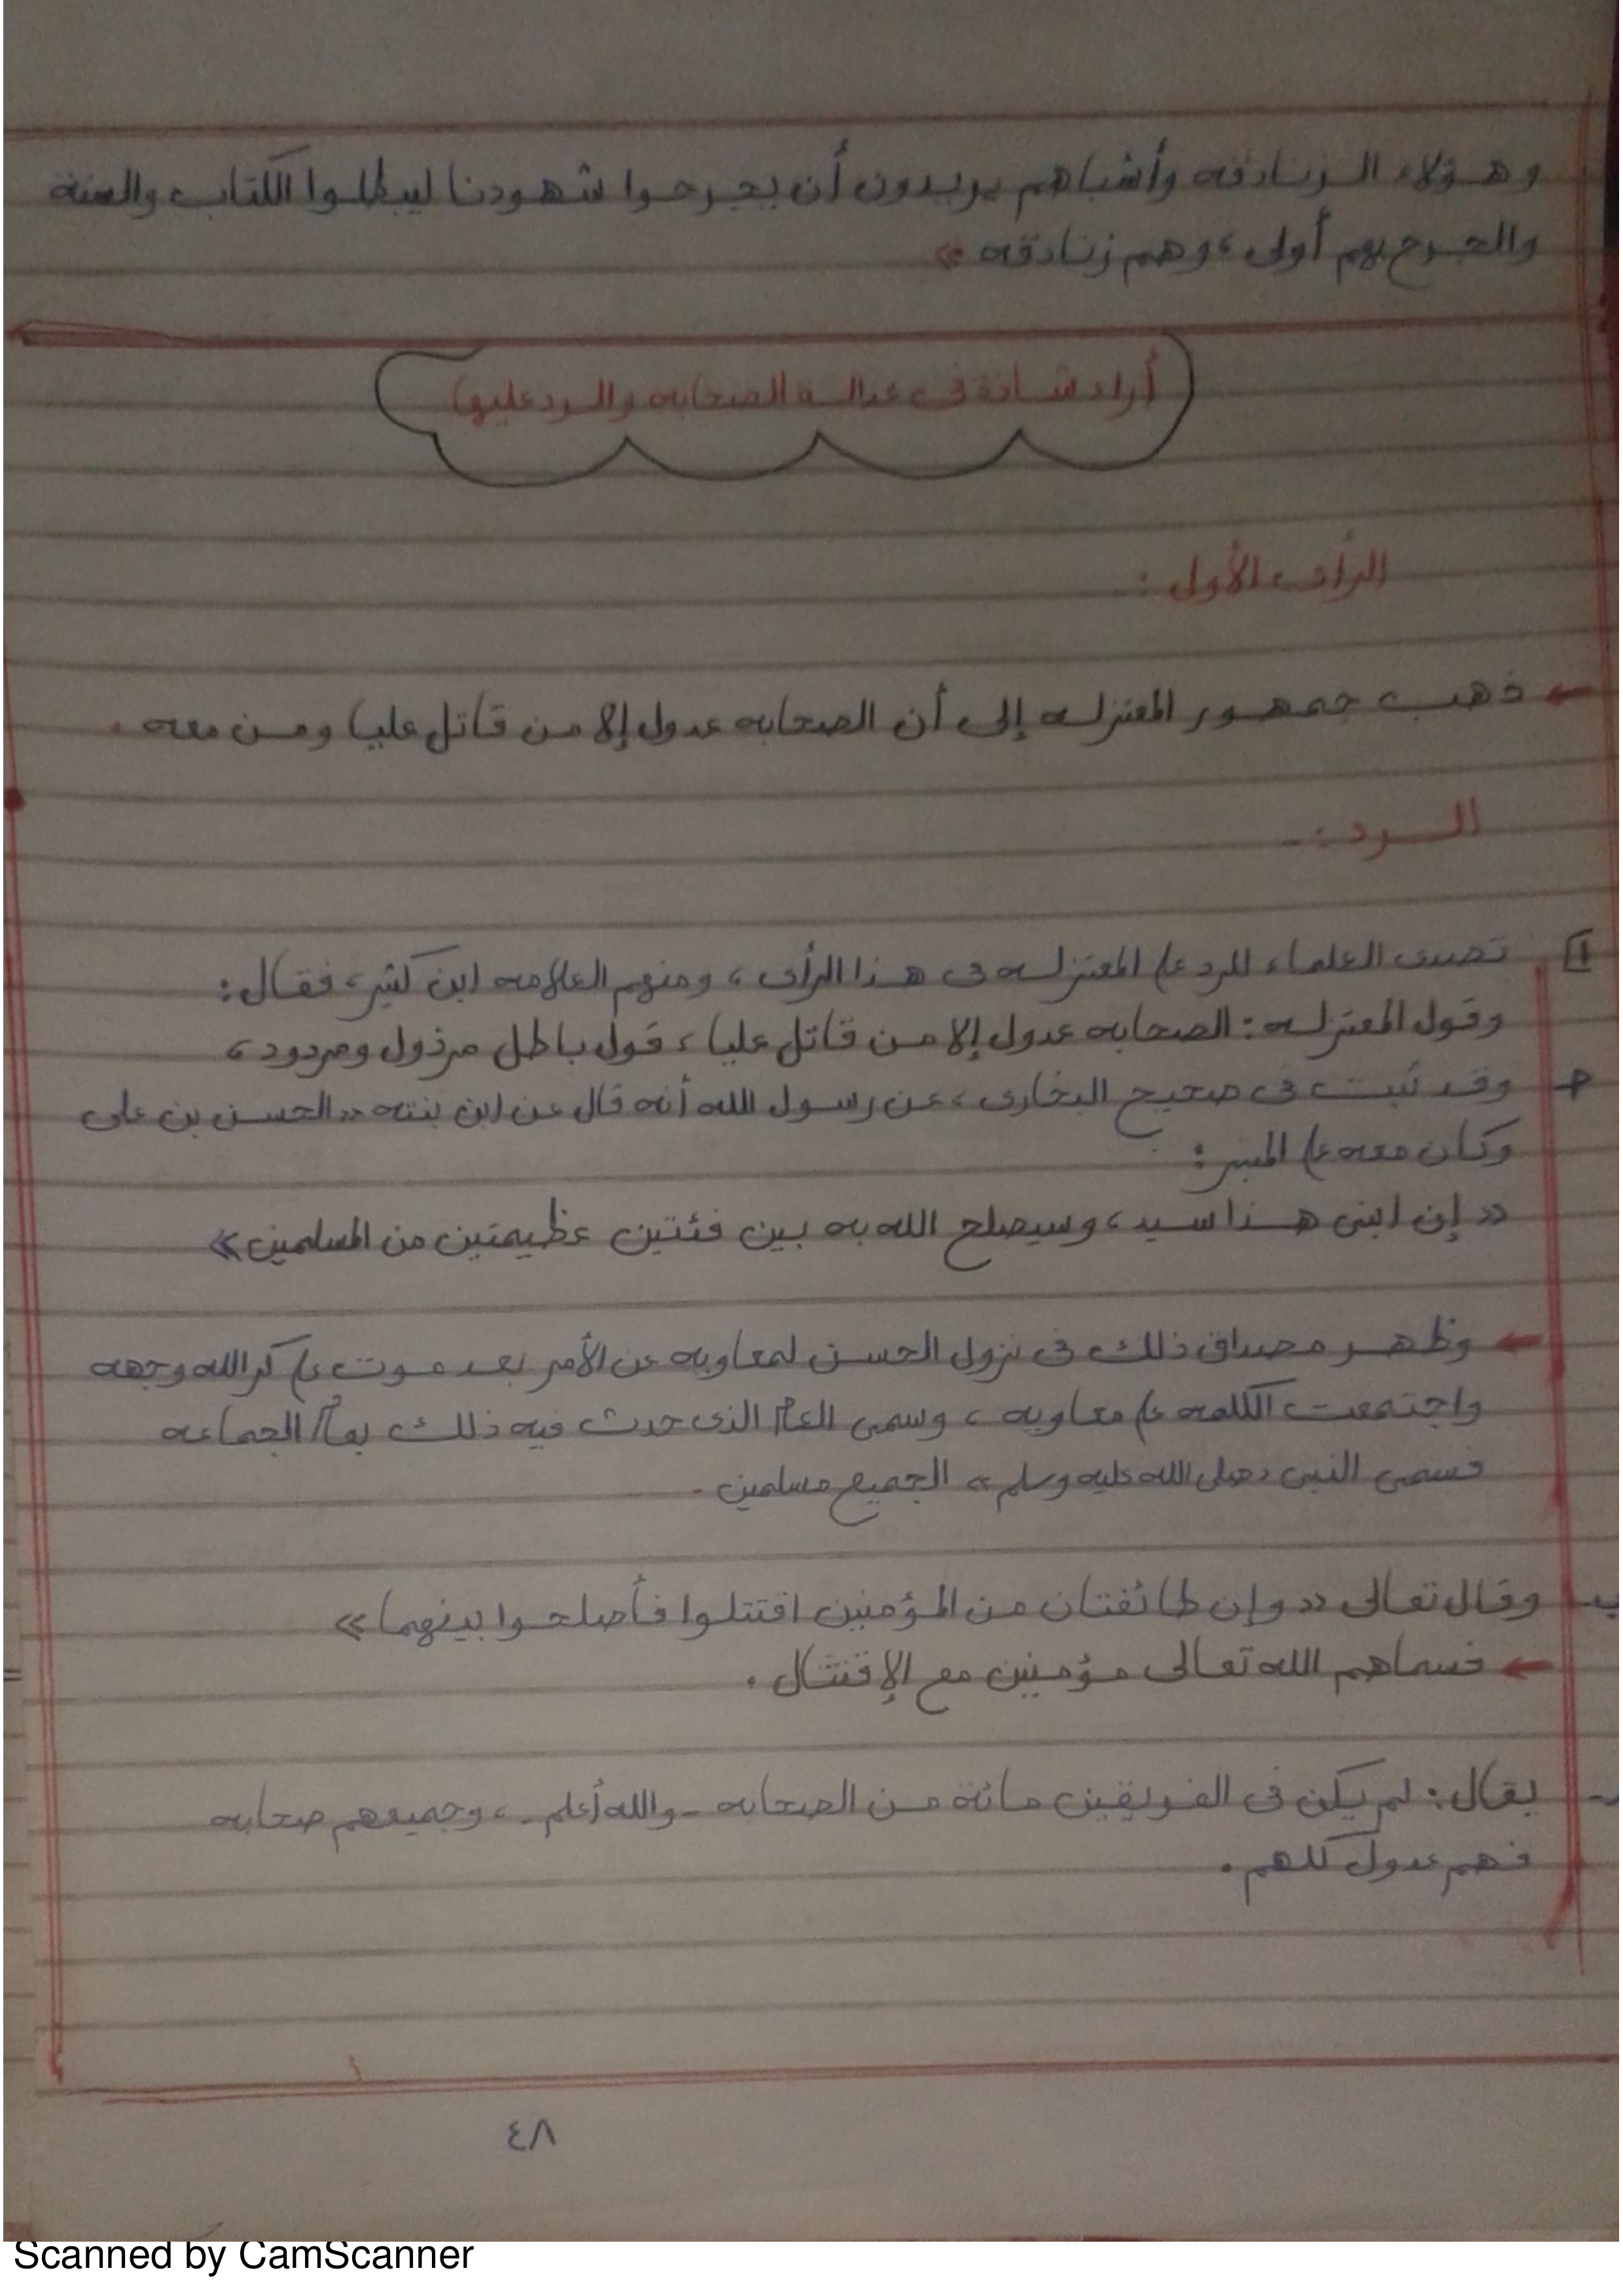 وهؤلاء الزنادقه وأشباهم يريدون أن يجرحوا شهودنا ليبطلوا الكتاب والسنة
والجرح بهم أولى ، وهم زنادقه »
أراء شاذة فى عدالة الصحابه والرد عليها
الرأى الأول :-
← ذهب جمهور المعتزله إلى أن الصحابه عدول إلا من قاتل عليا ومن معه .
الرد :-
تصدى العلماء للرد على المعتزله فى هذا الرأى ، ومنهم العلامه ابن كثير ، فقال :
وقول المعتزله : الصحابه عدول إلا من قاتل عليا ، قول باطل مرذول ومردود ،
وقد ثبت فى صحيح البخارى ، عن رسول الله أنه قال عن ابن بنته « الحسن بن على
وكان معه على المنبر :
« إن ابنى هذا سيد ، وسيصلح الله به بين فئتين عظيمتين من المسلمين »
← وظهر مصداق ذلك فى نزول الحسن لمعاويه عن الأمر بعد موت على كرم الله وجهه
واجتمعت الكلمه على معاويه ، وسمى العام الذى حدث فيه ذلك بعام الجماعه
فسمى النبى « صلى الله عليه وسلم » الجميع مسلمين .
ب- وقال تعالى « وإن طائفتان من المؤمنين اقتتلوا فأصلحوا بينهما »
← فسماهم الله تعالى مؤمنين مع الإقتتال .
يقال : لم يكن فى الفريقين مائة من الصحابه - والله أعلم - ، وجميعهم صحابه
فهم عدول كلهم .
٤٨
Scanned by CamScanner